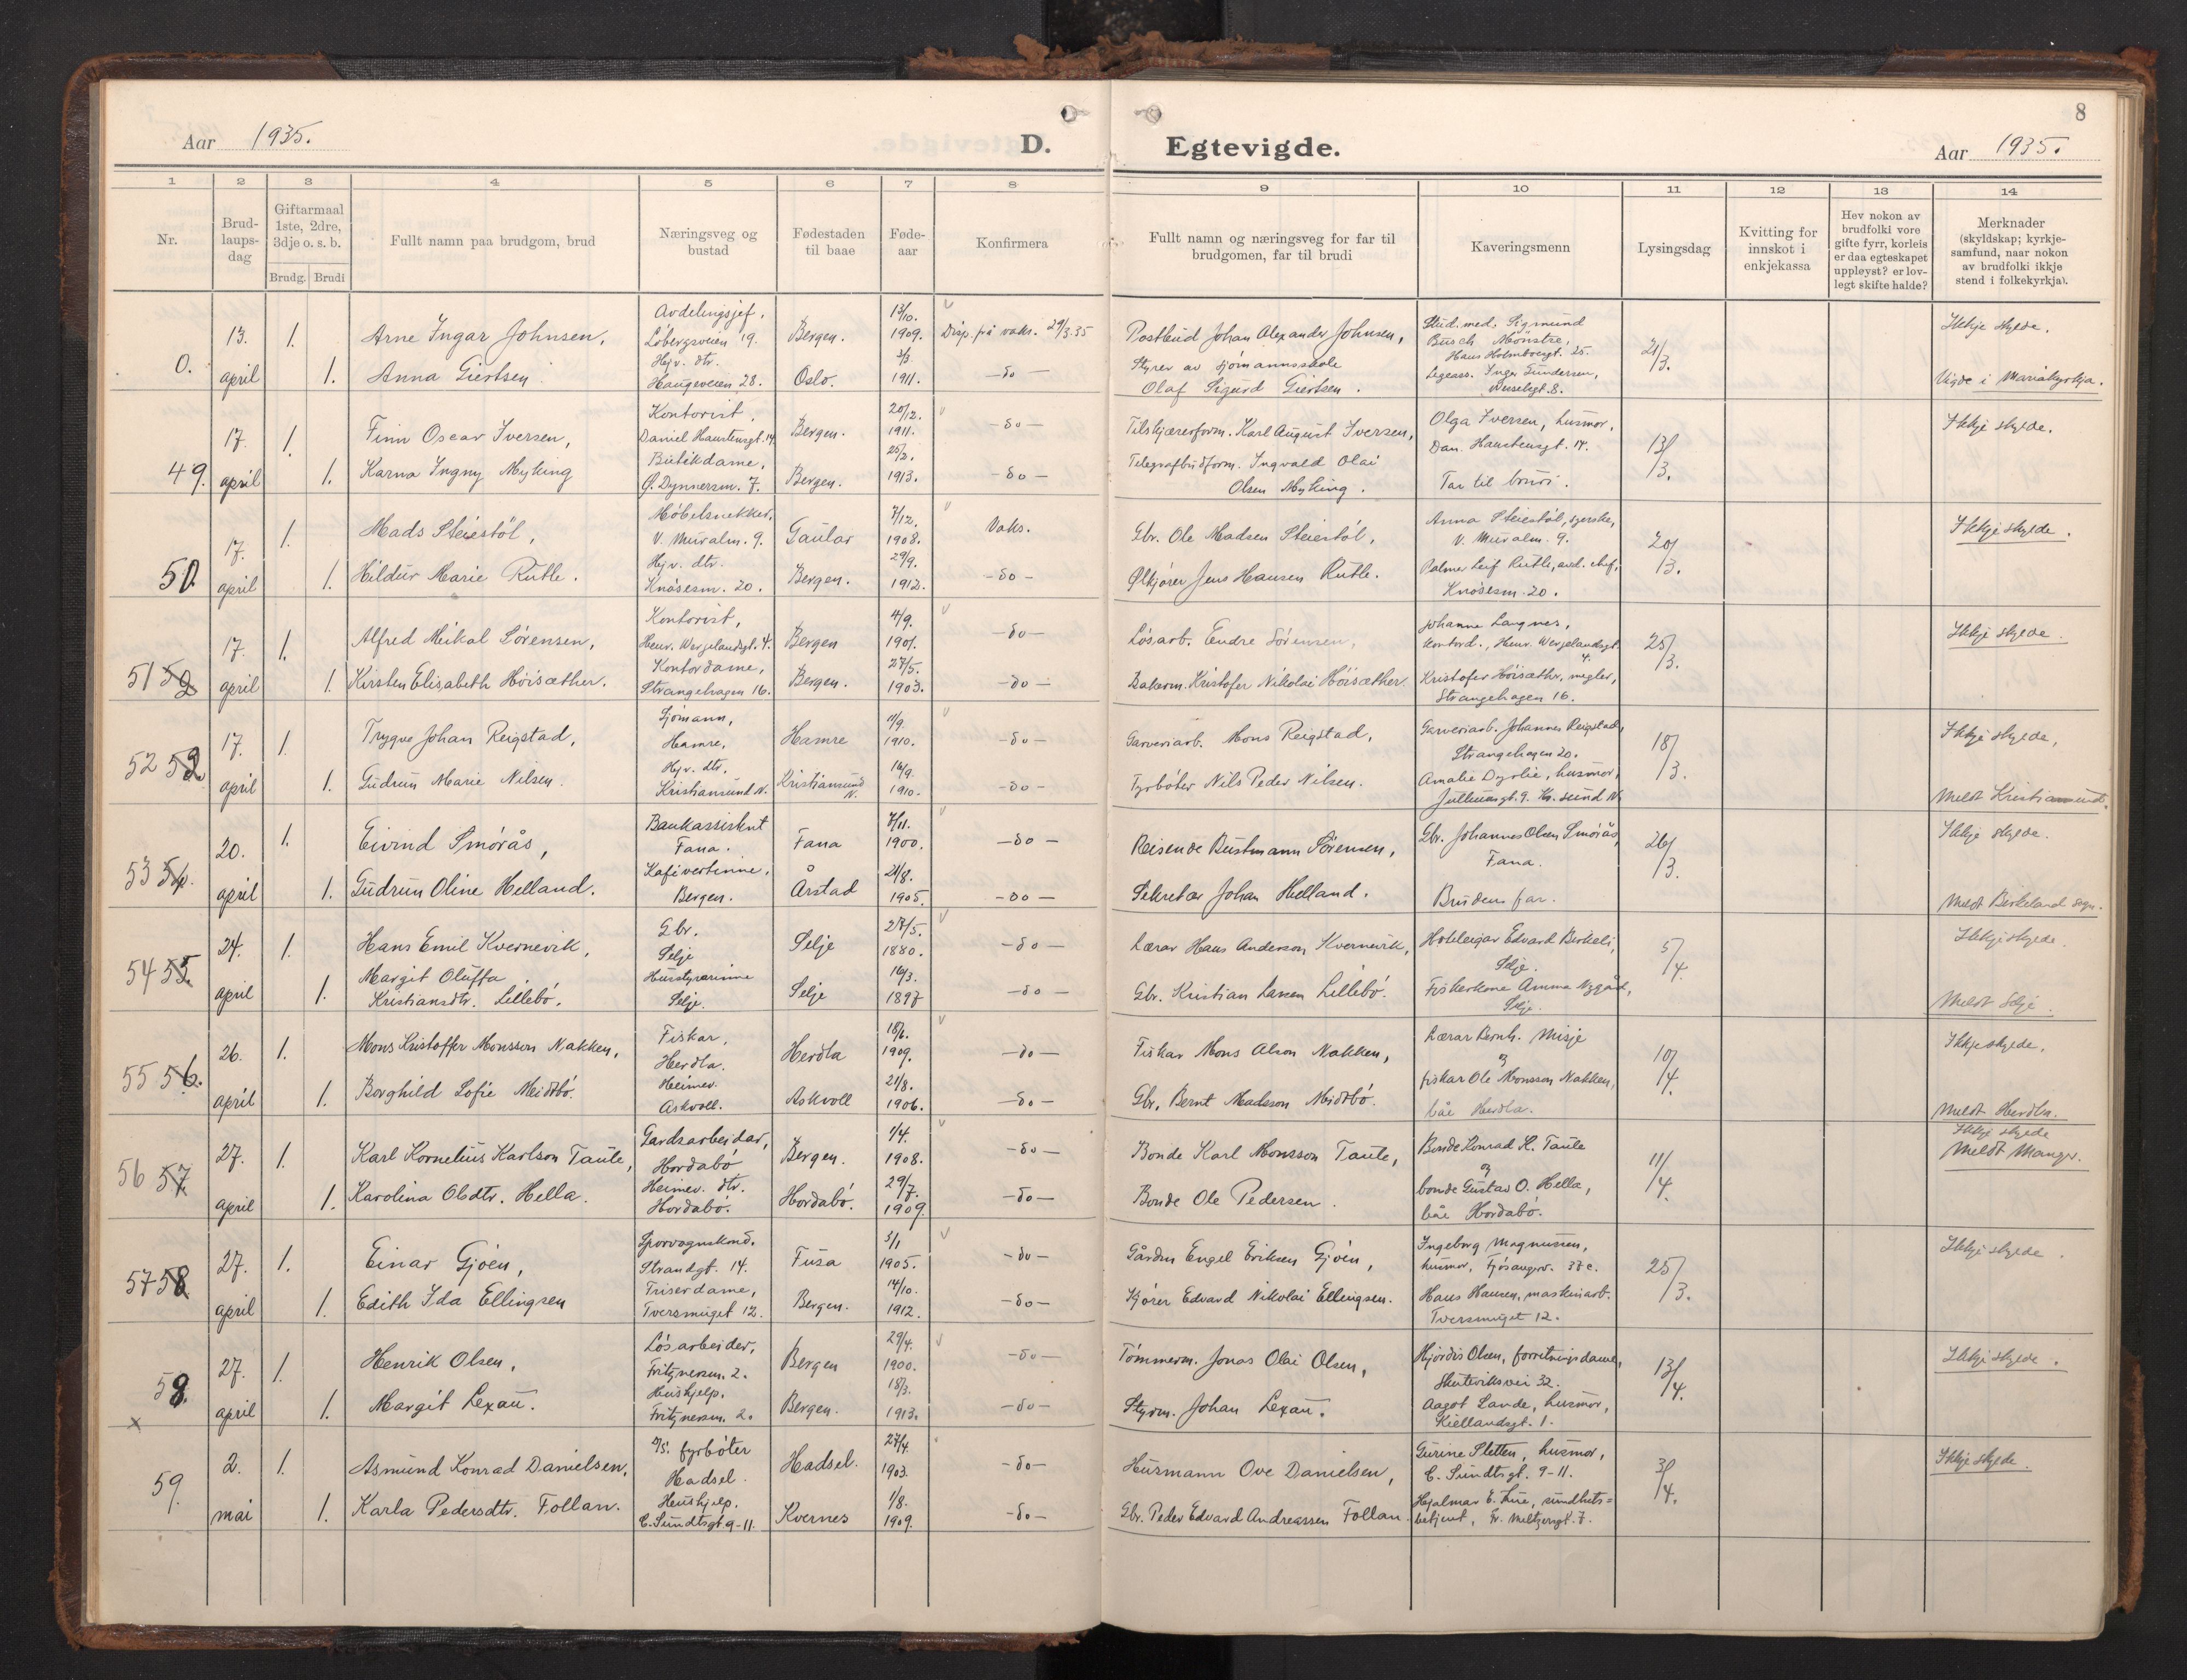 Aar 1935. D.
1 2 3 4 5 6 7 8
Nr.
Brudlaupsdag
Giftarmaal 1ste, 2dre, 3dje o. s. b.
Brudg. Brudi
Fullt namn paa brudgom, brud
Næringsveg og bustad
Fødestaden til baae
Fødeaar
Konfirmera
8
Egtevigde. Aar 1935.
9 10 11 12 13 14
Fullt namn og næringsveg for far til brudgomen, far til brudi
Kaveringsmenn
Lysingsdag
Kvitting for innskot i enkjekassa
Hev nokon av brudfolki vore gifte fyrr, korleis er daa egteskapet uppløyst? er lovlegt skifte halde?
Merknader (skyldskap; kyrkjesamfund, naar nokon av brudfolki ikkje stend i folkekyrkja).
0. 13. april 1. Arne Ingar Johnsen, Avdelingsjef, Løbergsveien 19. Bergen. 13/10. 1909. Disp. på vaks. 29/3.35 Postbud Johan Alexander Johnsen, Stud. med. Sigmund Busch Mönstre, Hans Holmboesgt. 25. 21/3. Ikkje skylde.
1. Anna Giertsen Hjv. dtr. Haugeveien 28. Oslo. 3/3. 1911. -do- Styrer av sjømannsskole Olaf Sigurd Giertsen. Legeass. Inger Gundersen, 8. Vigde i Mariakyrkja.
49. 17. april 1. Finn Oscar Iversen, Kontorist, Daniel Hanstensgt. 14. Bergen. 20/12. 1911. -do- Tilskjærerform. Karl August Iversen, Olga Iversen, husmor, Dan. Hanstensgt. 14. 13/3. Ikkje skylde.
1. Karna Ingny Myking Butikdame, Ø. Dynnersm. 7. Bergen. 25/2. 1913. -do- Telegrafbudform. Ingvald Olai Olsen Myking. Far til brudi.
50. 17. april 1. Mads Steiestöl, Möbelsnekker, V. Muralm. 9. Gaular 7/12. 1908. Vaks. Gbr. Ole Madsen Steiestöl, Anna Steiestöl, syerske, V. Muralm. 9. 20/3. Ikkje skylde.
1. Hildur Marie Rutle. Hjv. dtr. Knösesm. 20. Bergen. 29/9. 1912. -do- Ølkjører Jens Hansen Rutle. Palmer Leif Rutle, avd. chef, Knösesm. 20.
51 52 17. april 1. Alfred Mikal Sørensen, Kontorist, Henr. Wergelandsgt. 4. Bergen 4/9. 1901. -do- Løsarb. Endre Sörensen, Johanne Langnes, kontord., Henr. Wergelandsgt. 4. 25/3. Ikkje skylde.
1. Kirsten Elisabeth Höisæther. Kontordame, Strangehagen 16. Bergen. 27/5. 1903. -do- Bakerm. Kristofer Nikolai Höisæther. Kristofer Höisæther, megler, Strangehagen 16.
52 53 17. april 1. Trygve Johan Reigstad, Sjömann, Hamre, Hamre 11/9. 1910. -do- Garveriarb. Mons Reigstad, Garveriarb. Johannes Reigstad, Strangehagen 20. 18/3. Ikkje skylde,
1. Gudrun Marie Nilsen. Hjv. dtr. Kristiansund N. Kristiansund N. 16/9. 1910. -do- Fyrböter Nils Peder Nilsen. Amalie Dyrlie, husmor, 9. Kr. sund N. Meldt Kristiansund.
53 54. 20. april 1. Eivind Smörås, Bankassistent Fana. Fana 7/11. 1900. -do- Reisende Bustmann Sörensen, Gbr. Johannes Olsen Smörås, Fana. 26/3. Ikkje skylde.
1. Gudrun Oline Helland. Kafévertinne, Bergen. Årstad 21/8. 1905. -do- Sekretær Johan Helland. Brudens far. Meldt Birkeland sogn.
54 55. 24. april 1. Hans Emil Kvernevik, Gbr. Selje Selje 27/5. 1880. -do- Lærar Hans Anderson Kvernevik, Hoteleigar Edvard Berkeli, Selje. 5/4. Ikkje skylde.
1. Margit Oluffa Kristiansdtr. Lillebö. Husstyrerinne Selje. Selje 16/3. 1897 -do- Gbr. Kristian Larsen Lillebö. Fiskerkone Amma Nygård, Selje. Meldt Selje.
55 56. 26. april 1. Mons Kristoffer Monsson Nakken, Fiskar, Herdla. Herdla 18/6. 1909. -do- Fiskar Mons Alson Nakken, Lærar Bernh. Misje og 10/4. Ikkje skylde.
1. Borghild Sofie Meidtbö. Heimev. Askvoll. Askvoll 21/8. 1906. -do- Gbr. Bernt Madsson Midtbö. fiskar Ole Monsson Nakken, båe Herdla. Meldt Herdla.
56 57 27. april 1. Karl Kornelius Karlson Taule, Gardsarbeidar, Hordabö Bergen. 1/4. 1908. -do- Bonde Karl Monsson Taule, Bonde Konrad K. Taule og 11/4. Ikkje skylde Meldt Manger.
1. Karolina Olsdtr. Hella. Heimev. dtr. Hordabö. Hordabö. 29/7. 1909. -do- Bonde Ole Pedersen. bonde Gustav O. Hella, båe Hordabö.
57 58 27. april 1. Einar Gjöen, Sporvognskond. Strandgt. 14. Fusa 3/1 1905. -do- Gårdm Engel Eriksen Gjöen, Ingeborg Magnussen, husmor, Fjösangerv. 37c. 25/3. Ikkje skylde.
1. Edith Ida Ellingsen Friserdame, Tversmuget 12. Bergen. 14/10. 1912. -do- Kjører Edvard Nikolai Ellingsen. Hans Hansen, maskinarb. Tversmuget 12.
58. x 27. april 1. Henrik Olsen, Lösarbeider, Fritznersm. 2. Bergen 29/4. 1900. -do- Tömmerm. Jonas Olai Olsen, Hjördis Olsen, forretningsdame, Skuteviksvei 32. 13/4. Ikkje skylde.
1. Margit Lexau. Hushjelp. Fritznersm. 2. Bergen. 18/3. 1913. -do- Styrm. Johan Lexau. Aagot Lande, husmor, Kiellandsgt. 1.
59. 2. mai 1. Asmund Konrad Danielsen, fyrböter Hadsel. Hadsel. 27/4. 1903. -do- Husmann Ove Danielsen, Gurine Sletten, husmor, C. Sundtsgt. 9-11. 3/4. Ikkje skylde.
1. Karla Pedersdtr. Follan. Hushjelp. C. Sundtsgt 9-11. Kvernes 1/8. 1909. -do- Gbr. Peder Edvard Andreassen Follan. Hjalmar E. Lue, sundhetsbetjent, Fr. Meltzersgt. 7.